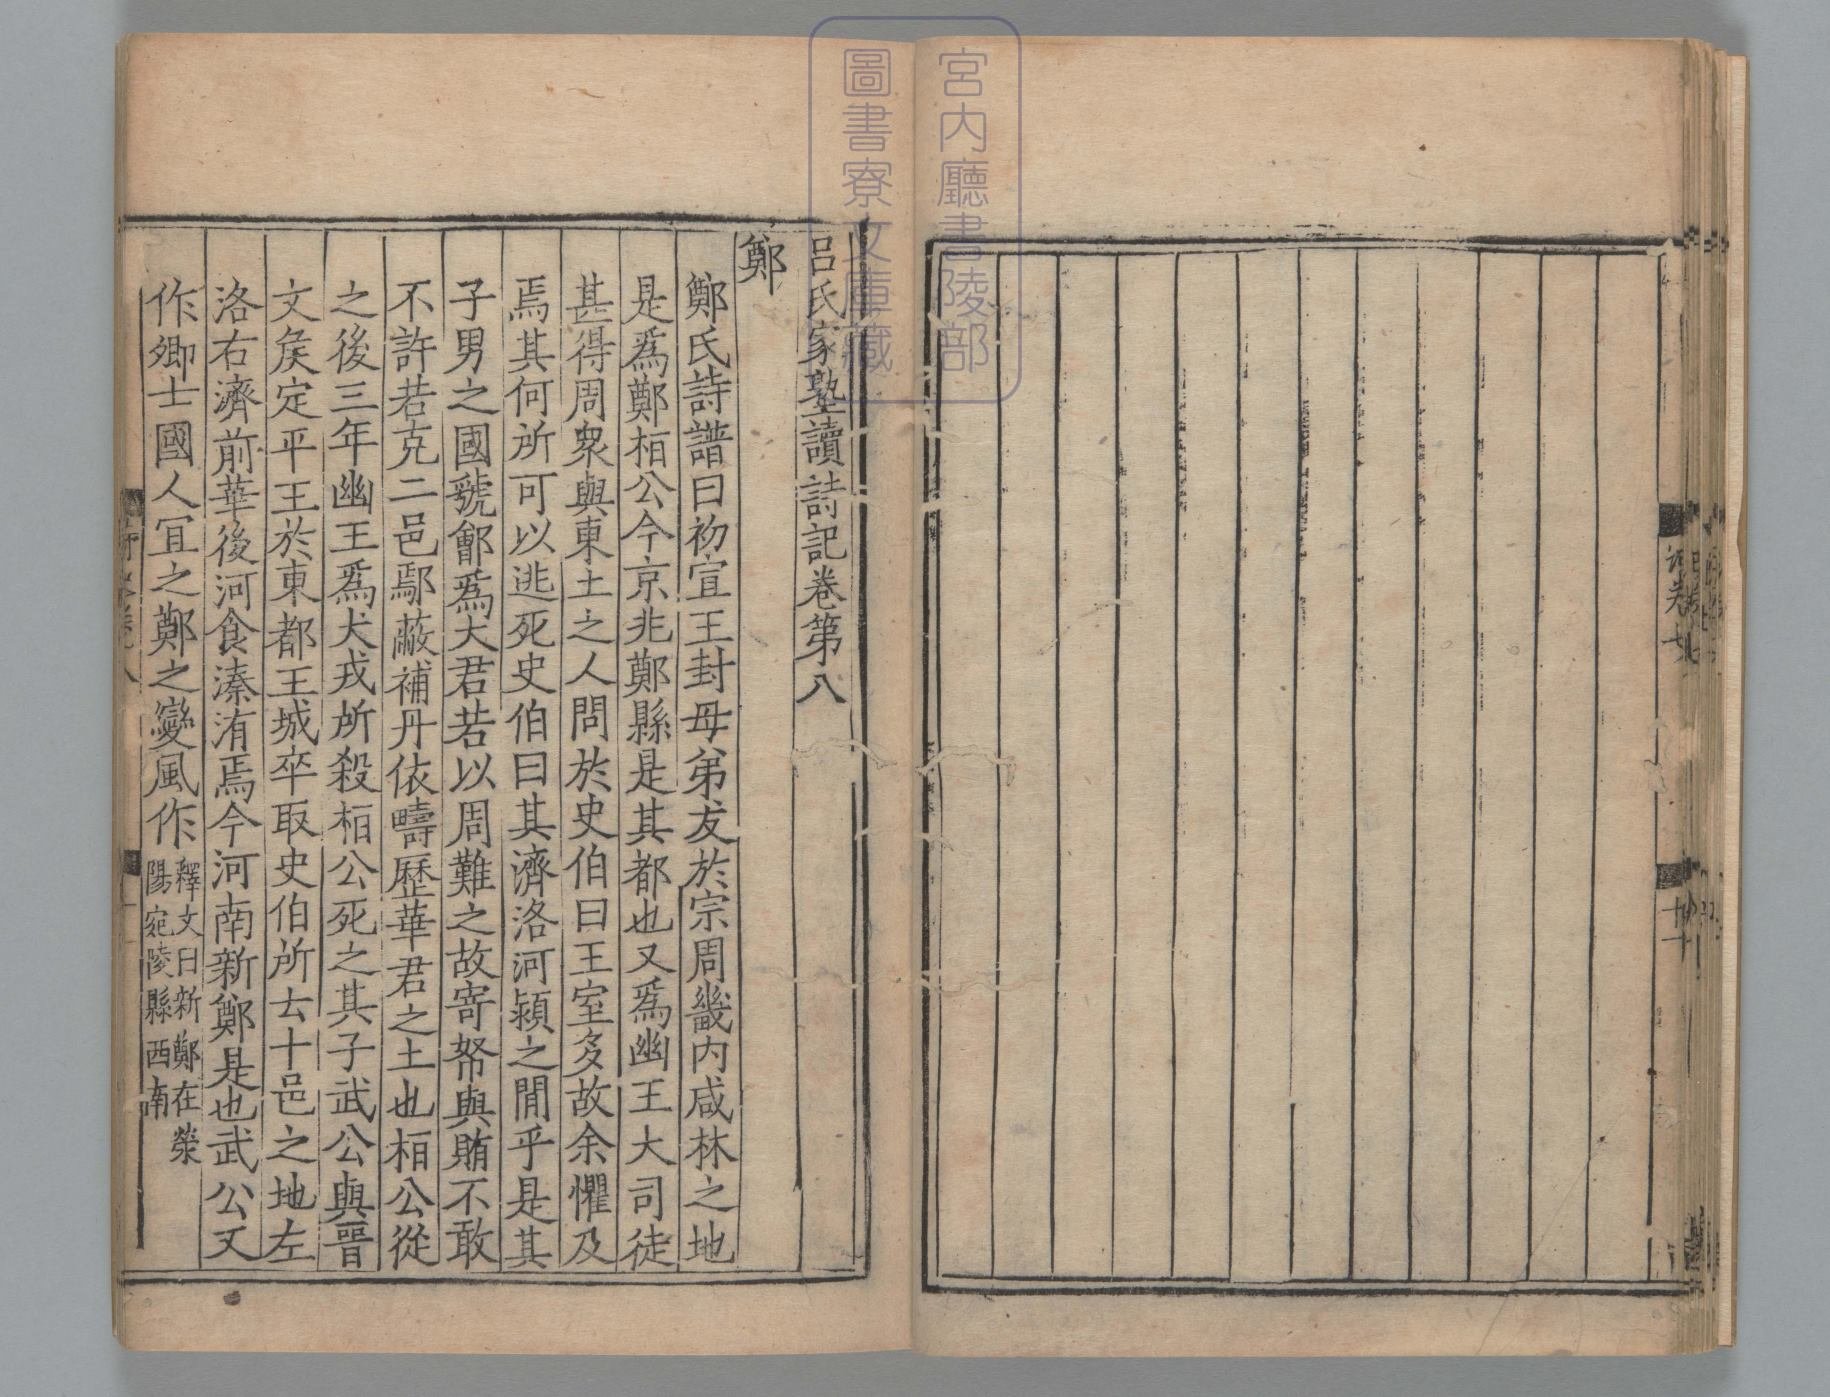 宮内廳書陵部
圖書寮文庫藏
呂氏家塾讀詩記卷第八
鄭
鄭氏詩譜曰初宣王封母弟友於宗周畿内咸林之地
是爲鄭桓公今京兆鄭縣是其都也又爲幽王大司徒
甚得周衆與東土之人問於史伯曰王室多故余懼及
焉其何所可以逃死史伯曰其濟洛河潁之閒乎是其
子男之國虢鄶爲大君若以周難之故寄帑與賄不敢
不許若克二邑鄢蔽補丹依疇歷華君之土也桓公從
之後三年幽王爲犬戎所殺桓公死之其子武公與晉
文侯定平王於東都王城卒取史伯所云十邑之地左
洛右濟前華後河食溱洧焉今河南新鄭是也武公又
作卿士國人宜之鄭之變風作
釋文曰新鄭在滎
陽宛陵縣西南